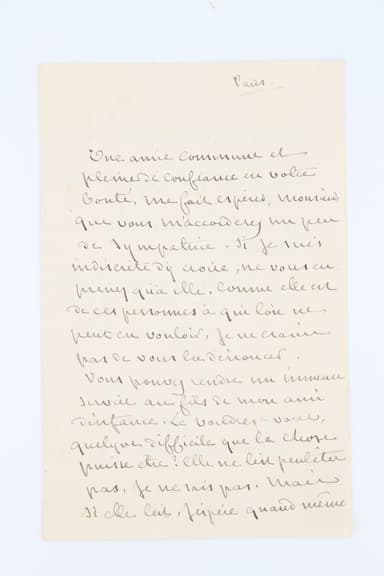 Paris.
Une amie commune et
pleine de confiance en votre
bonté, me fait espérer, monsieur
que vous m'accorderez un peu
de sympathie. Si je suis
indiscrète d'y croire, ne vous en
prenez qu'à elle. Comme elle est
de ces personnes à qui l'on ne
peut en vouloir, je ne crains
pas de vous la dénoncer.
Vous pouvez rendre un immense
service au fils de mon ami
d'enfance. Le voudrez-vous,
quelque difficile que la chose
puisse être? Elle ne l'est peut-être
pas, je ne sais pas. Mais
si elle l'est, j'espère quand même